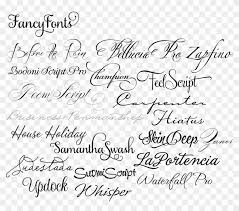 FancyFonts
Before the Rain Bellucia Pro Zapfino
Bodoni Script Pro Champion Feel Script
Poem Script Carpenter
Business Penmanship Hiatus
House Holiday Skin Deep
Samantha Swash LaPortencia
Suomi Script Waterfall Pro
Updock Whisper